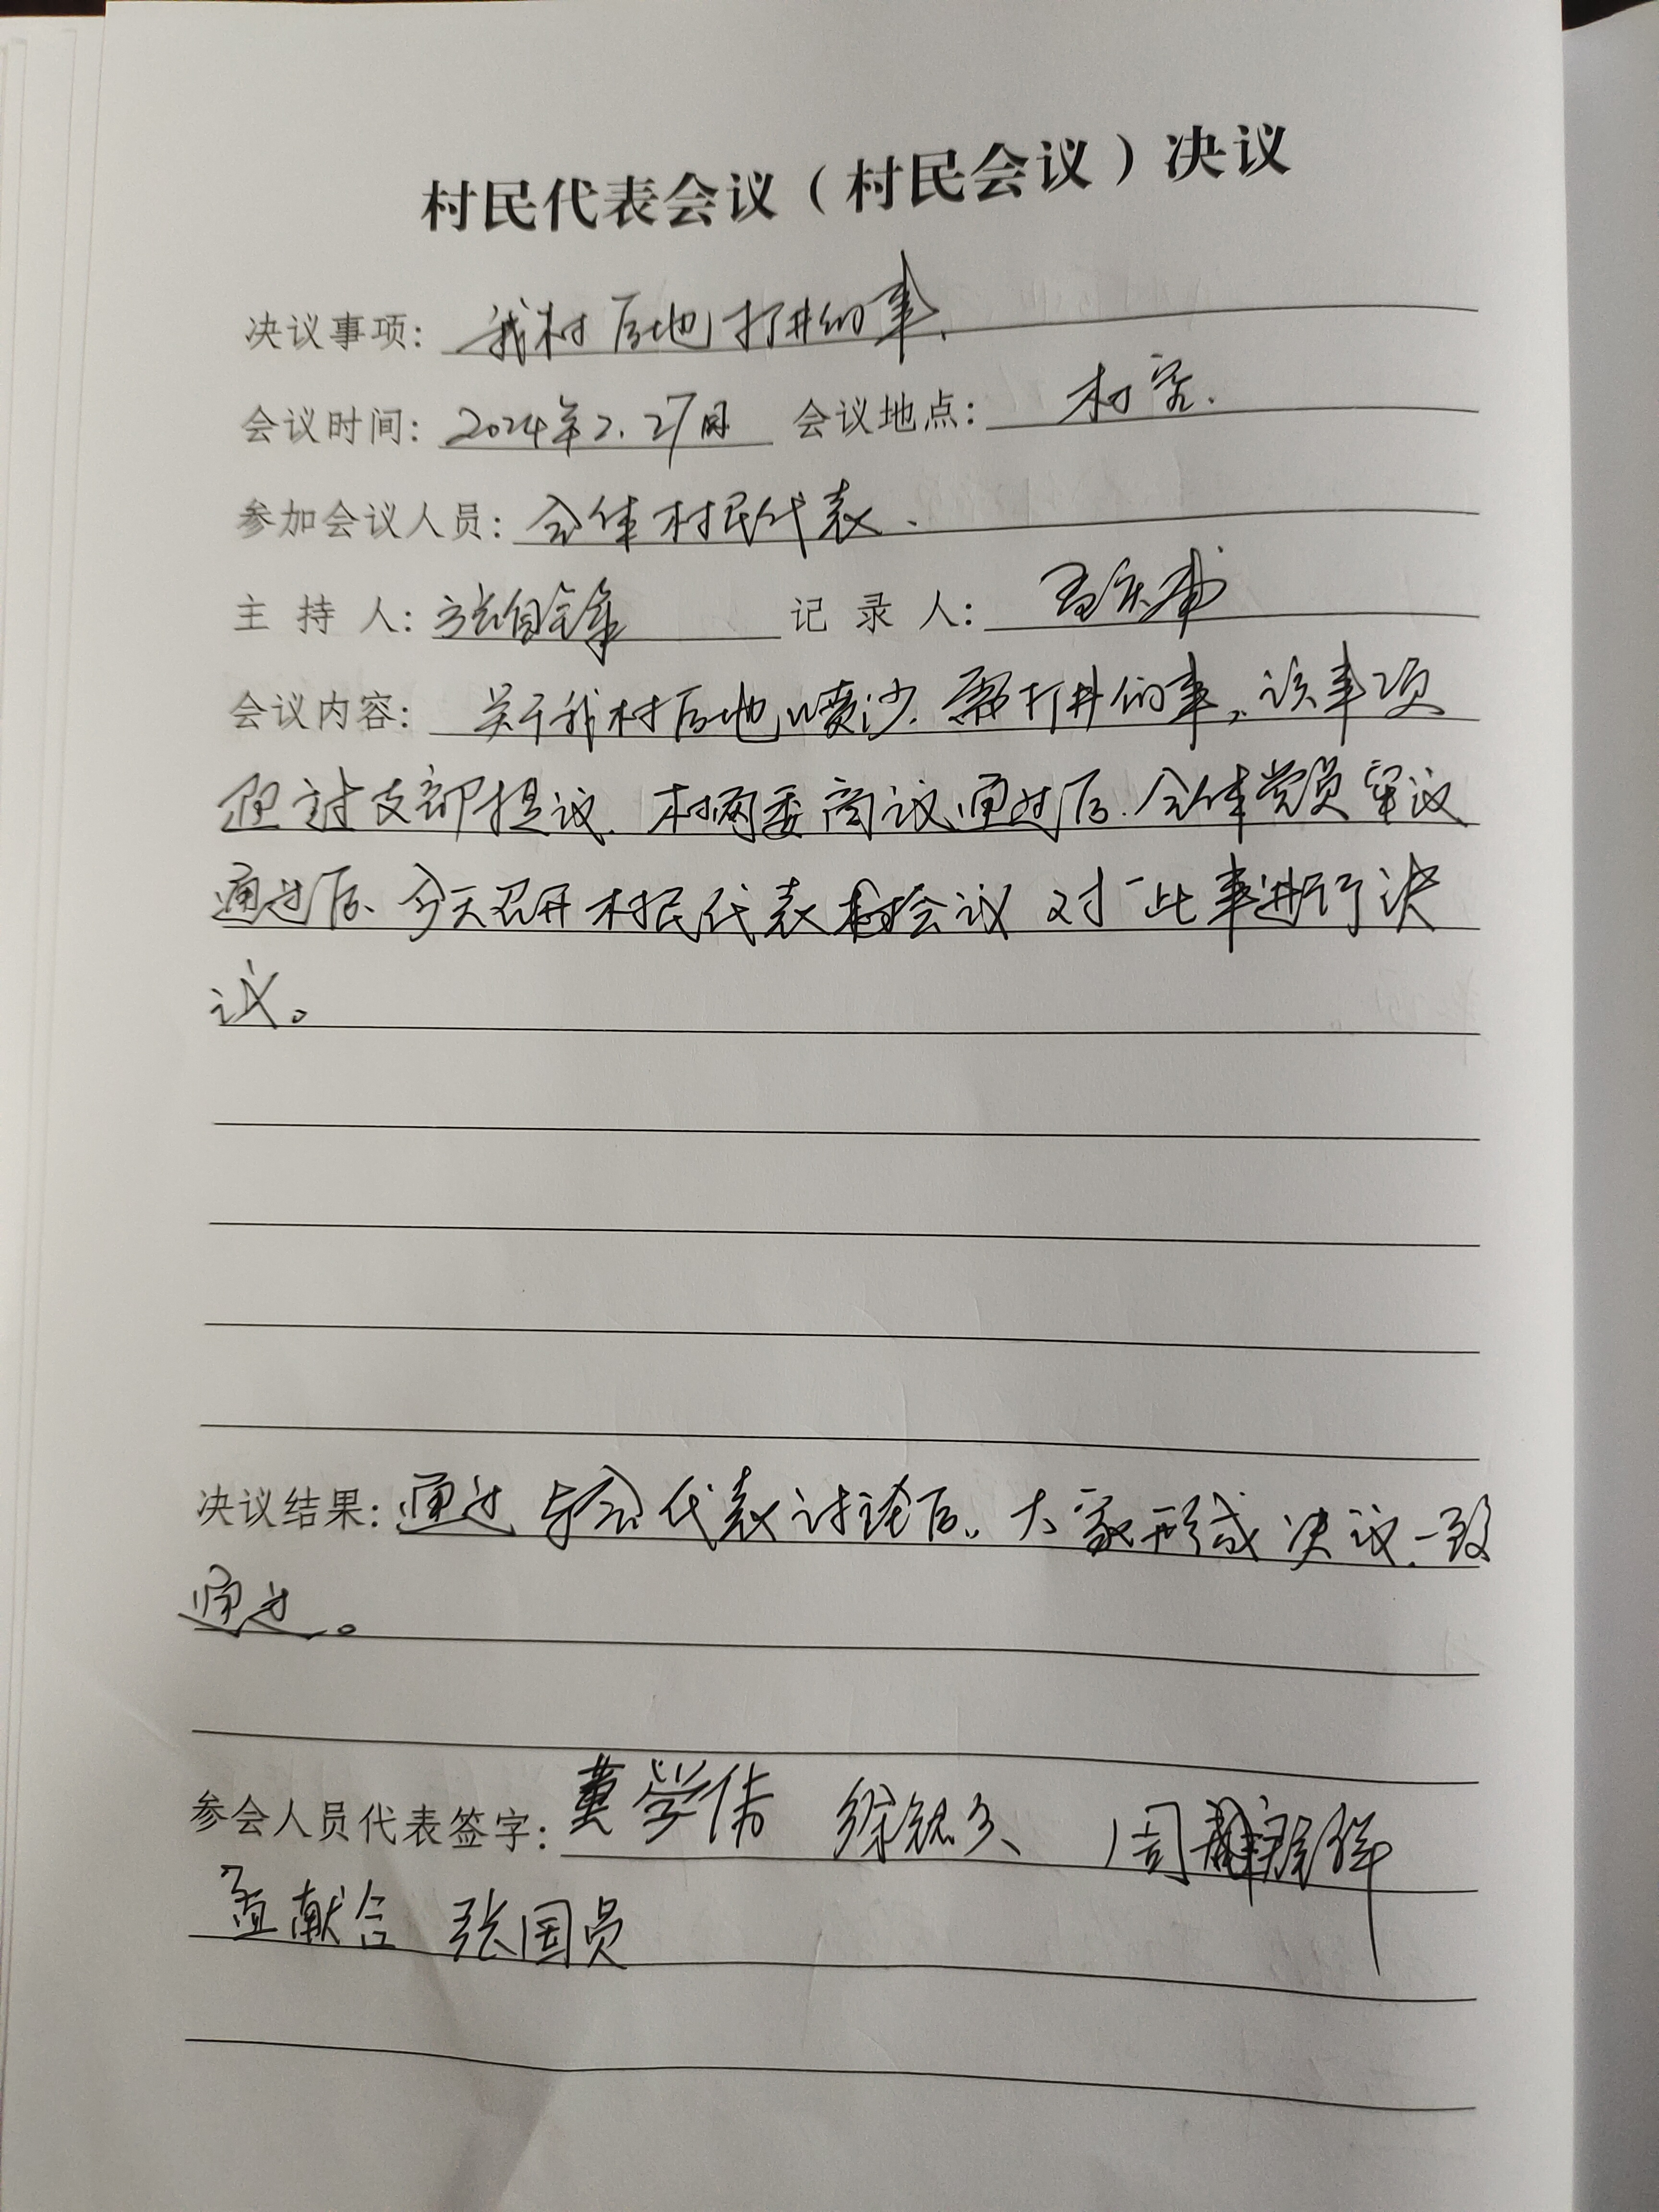 村民代表会议（村民会议）决议
决议事项：我村后地打井的事.
会议时间：2024年2.27日 会议地点：村室.
参加会议人员：全体村民代表.
主 持 人：张自锋 记 录 人：
会议内容：关于我村后地喷沙.需打井的事,该事项
通过支部提议.村两委商议通过后.全体党员审议
通过后、今天召开村民代表会议对此事进行决
议。
决议结果：通过与会代表讨论后.大家形成决议.一致
通过。
参会人员代表签字：黄学伟 周
孟献合 张国员